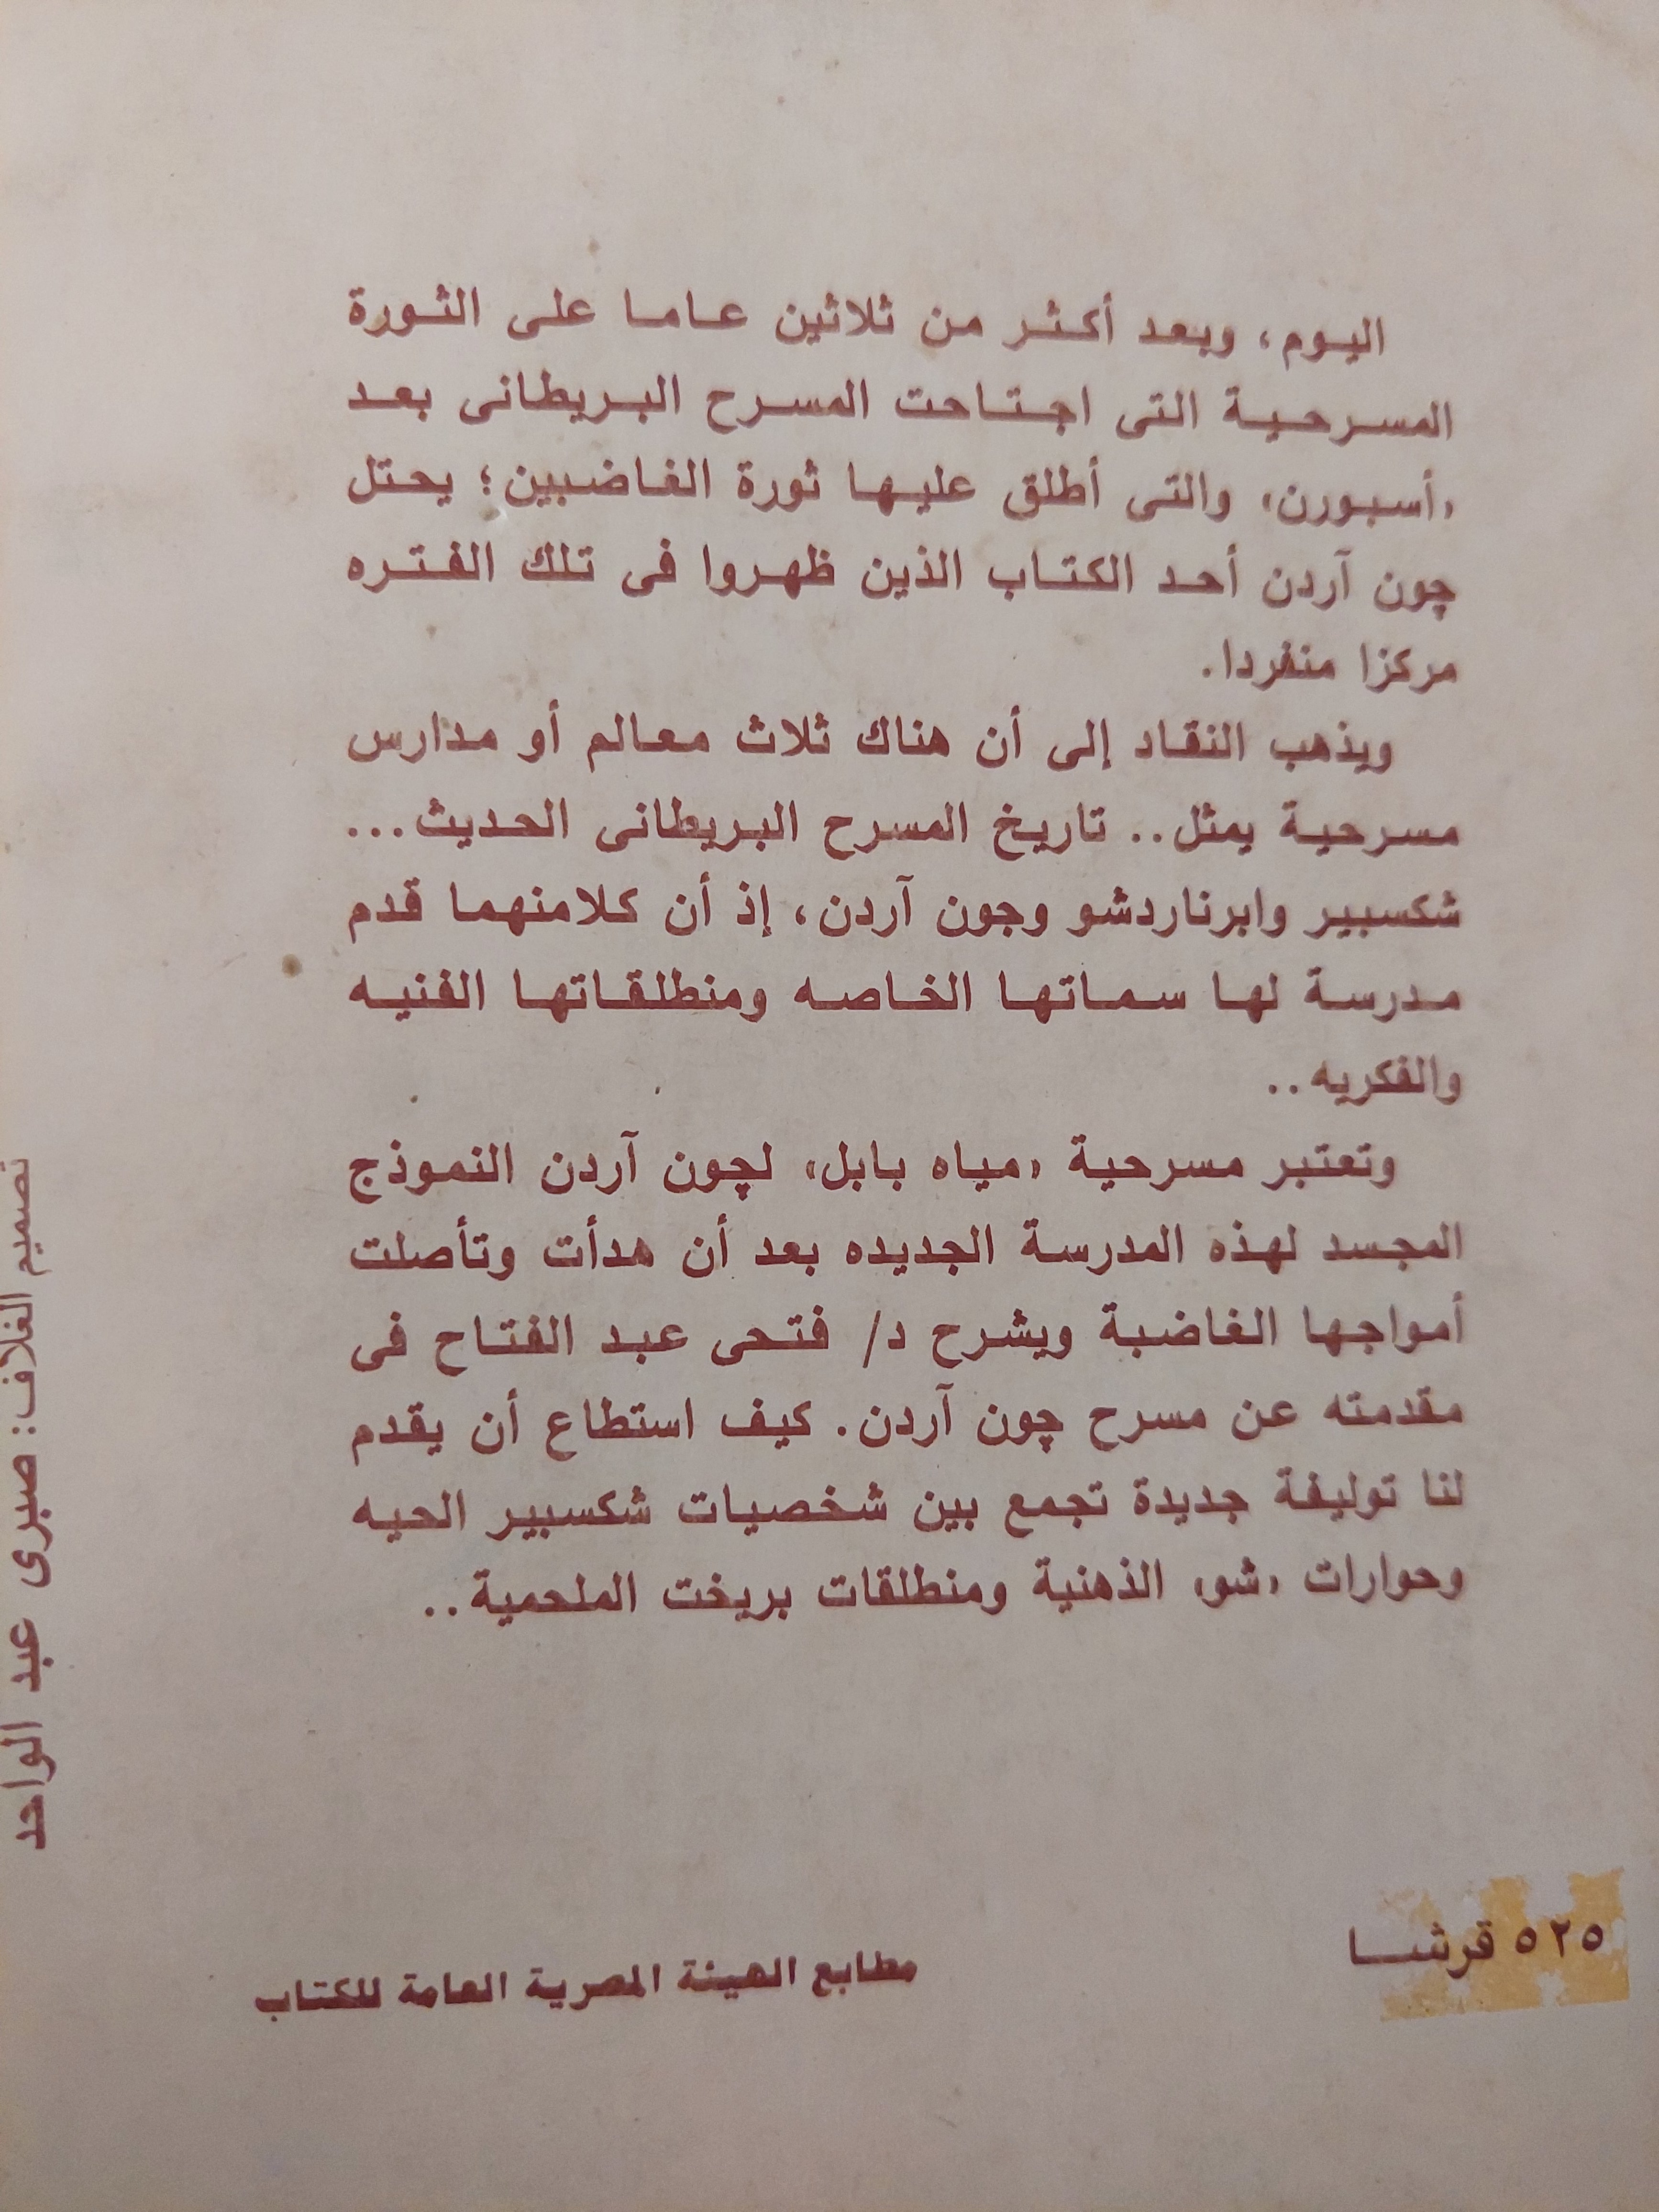 اليوم، وبعد أكثر من ثلاثين عاما على الثورة
المسرحية التى اجتاحت المسرح البريطانى بعد
«أسبورن» والتى أطلق عليها ثورة الغاضبين؛ يحتل
چون آردن أحد الكتاب الذين ظهروا فى تلك الفتره
مركزا منفردا.
ويذهب النقاد إلى أن هناك ثلاث معالم أو مدارس
مسرحية يمثل.. تاريخ المسرح البريطانى الحديث...
شكسبير وابرناردشو وجون آردن، إذ أن كلامنهما قدم
مدرسة لها سماتها الخاصه ومنطلقاتها الفنيه
والفكريه..
وتعتبر مسرحية «مياه بابل» لچون آردن النموذج
المجسد لهذه المدرسة الجديده بعد أن هدأت وتأصلت
أمواجها الغاضبة ويشرح د/ فتحى عبد الفتاح فى
مقدمته عن مسرح چون آردن. كيف استطاع أن يقدم
لنا توليفة جديدة تجمع بين شخصيات شكسبير الحيه
وحوارات «شو» الذهنية ومنطلقات بريخت الملحمية..
تصميم الغلاف: صبرى عبد الواحد
٥٢٥ قرشا
مطابع الهيئة المصرية العامة للكتاب